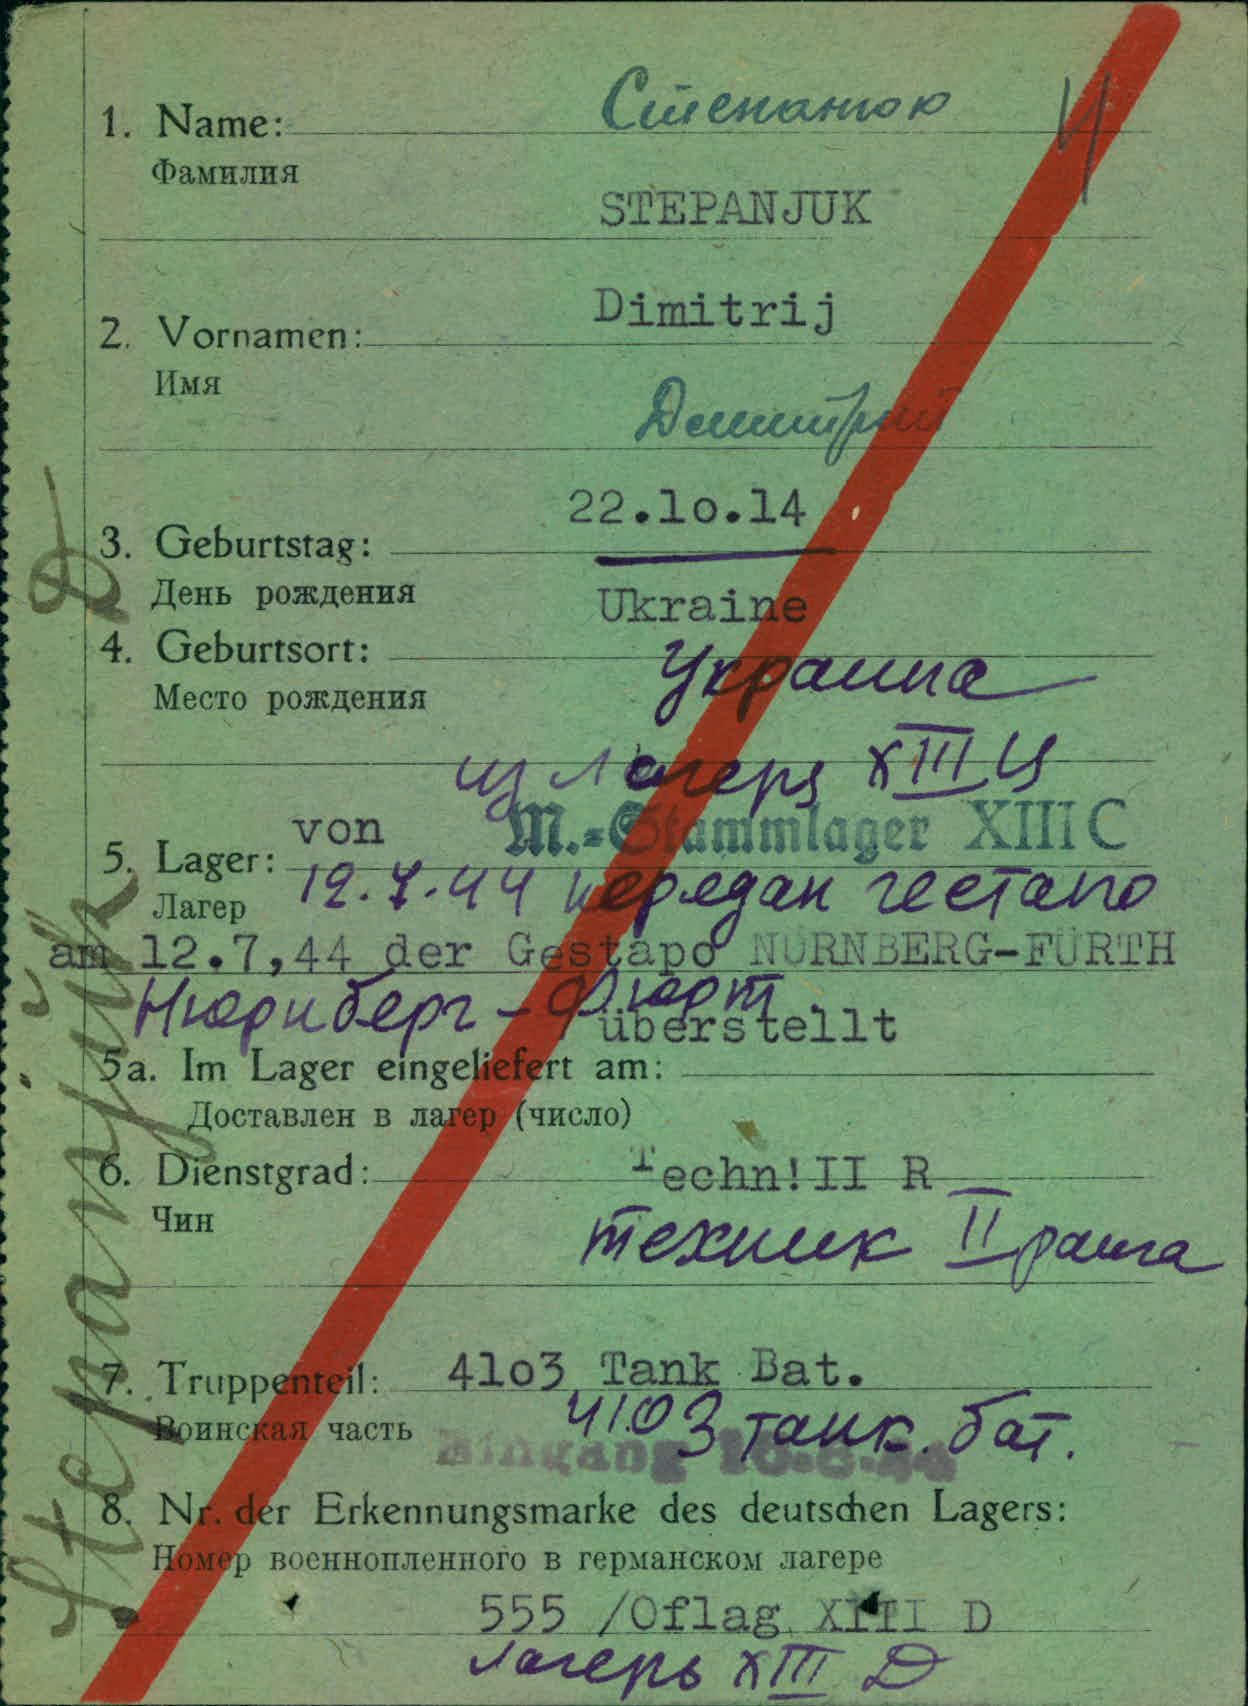 Степанюк
1. Name:
Фамилия
STEPANJUK
Dimitrij
2. Vornamen:
Имя
Димитрий
22.1o.14
3. Geburtstag:
День рождения
Ukraine
4. Geburtsort:
Украина
Место рождения
из лагеря XIII Ц
von M.-Stammlager XIII C
5. Lager:
12.7.44 передан гестапо
Лагер
am 12.7,44 der Gestapo NÜRNBERG-FÜRTH
Нюрнберг-Фюрт
überstellt
5a. Im Lager eingeliefert am:
Доставлен в лагер (число)
6. Dienstgrad: Techn!II R
Чин
техник II ранга
7. Truppenteil: 41o3 Tank Bat.
Воинская часть 4103 танк. бат.
Eingang
8. Nr. der Erkennungsmarke des deutschen Lagers:
Номер военнопленного в германском лагере
555 /Oflag XIII D
лагерь XIII D
Stepanjuk D